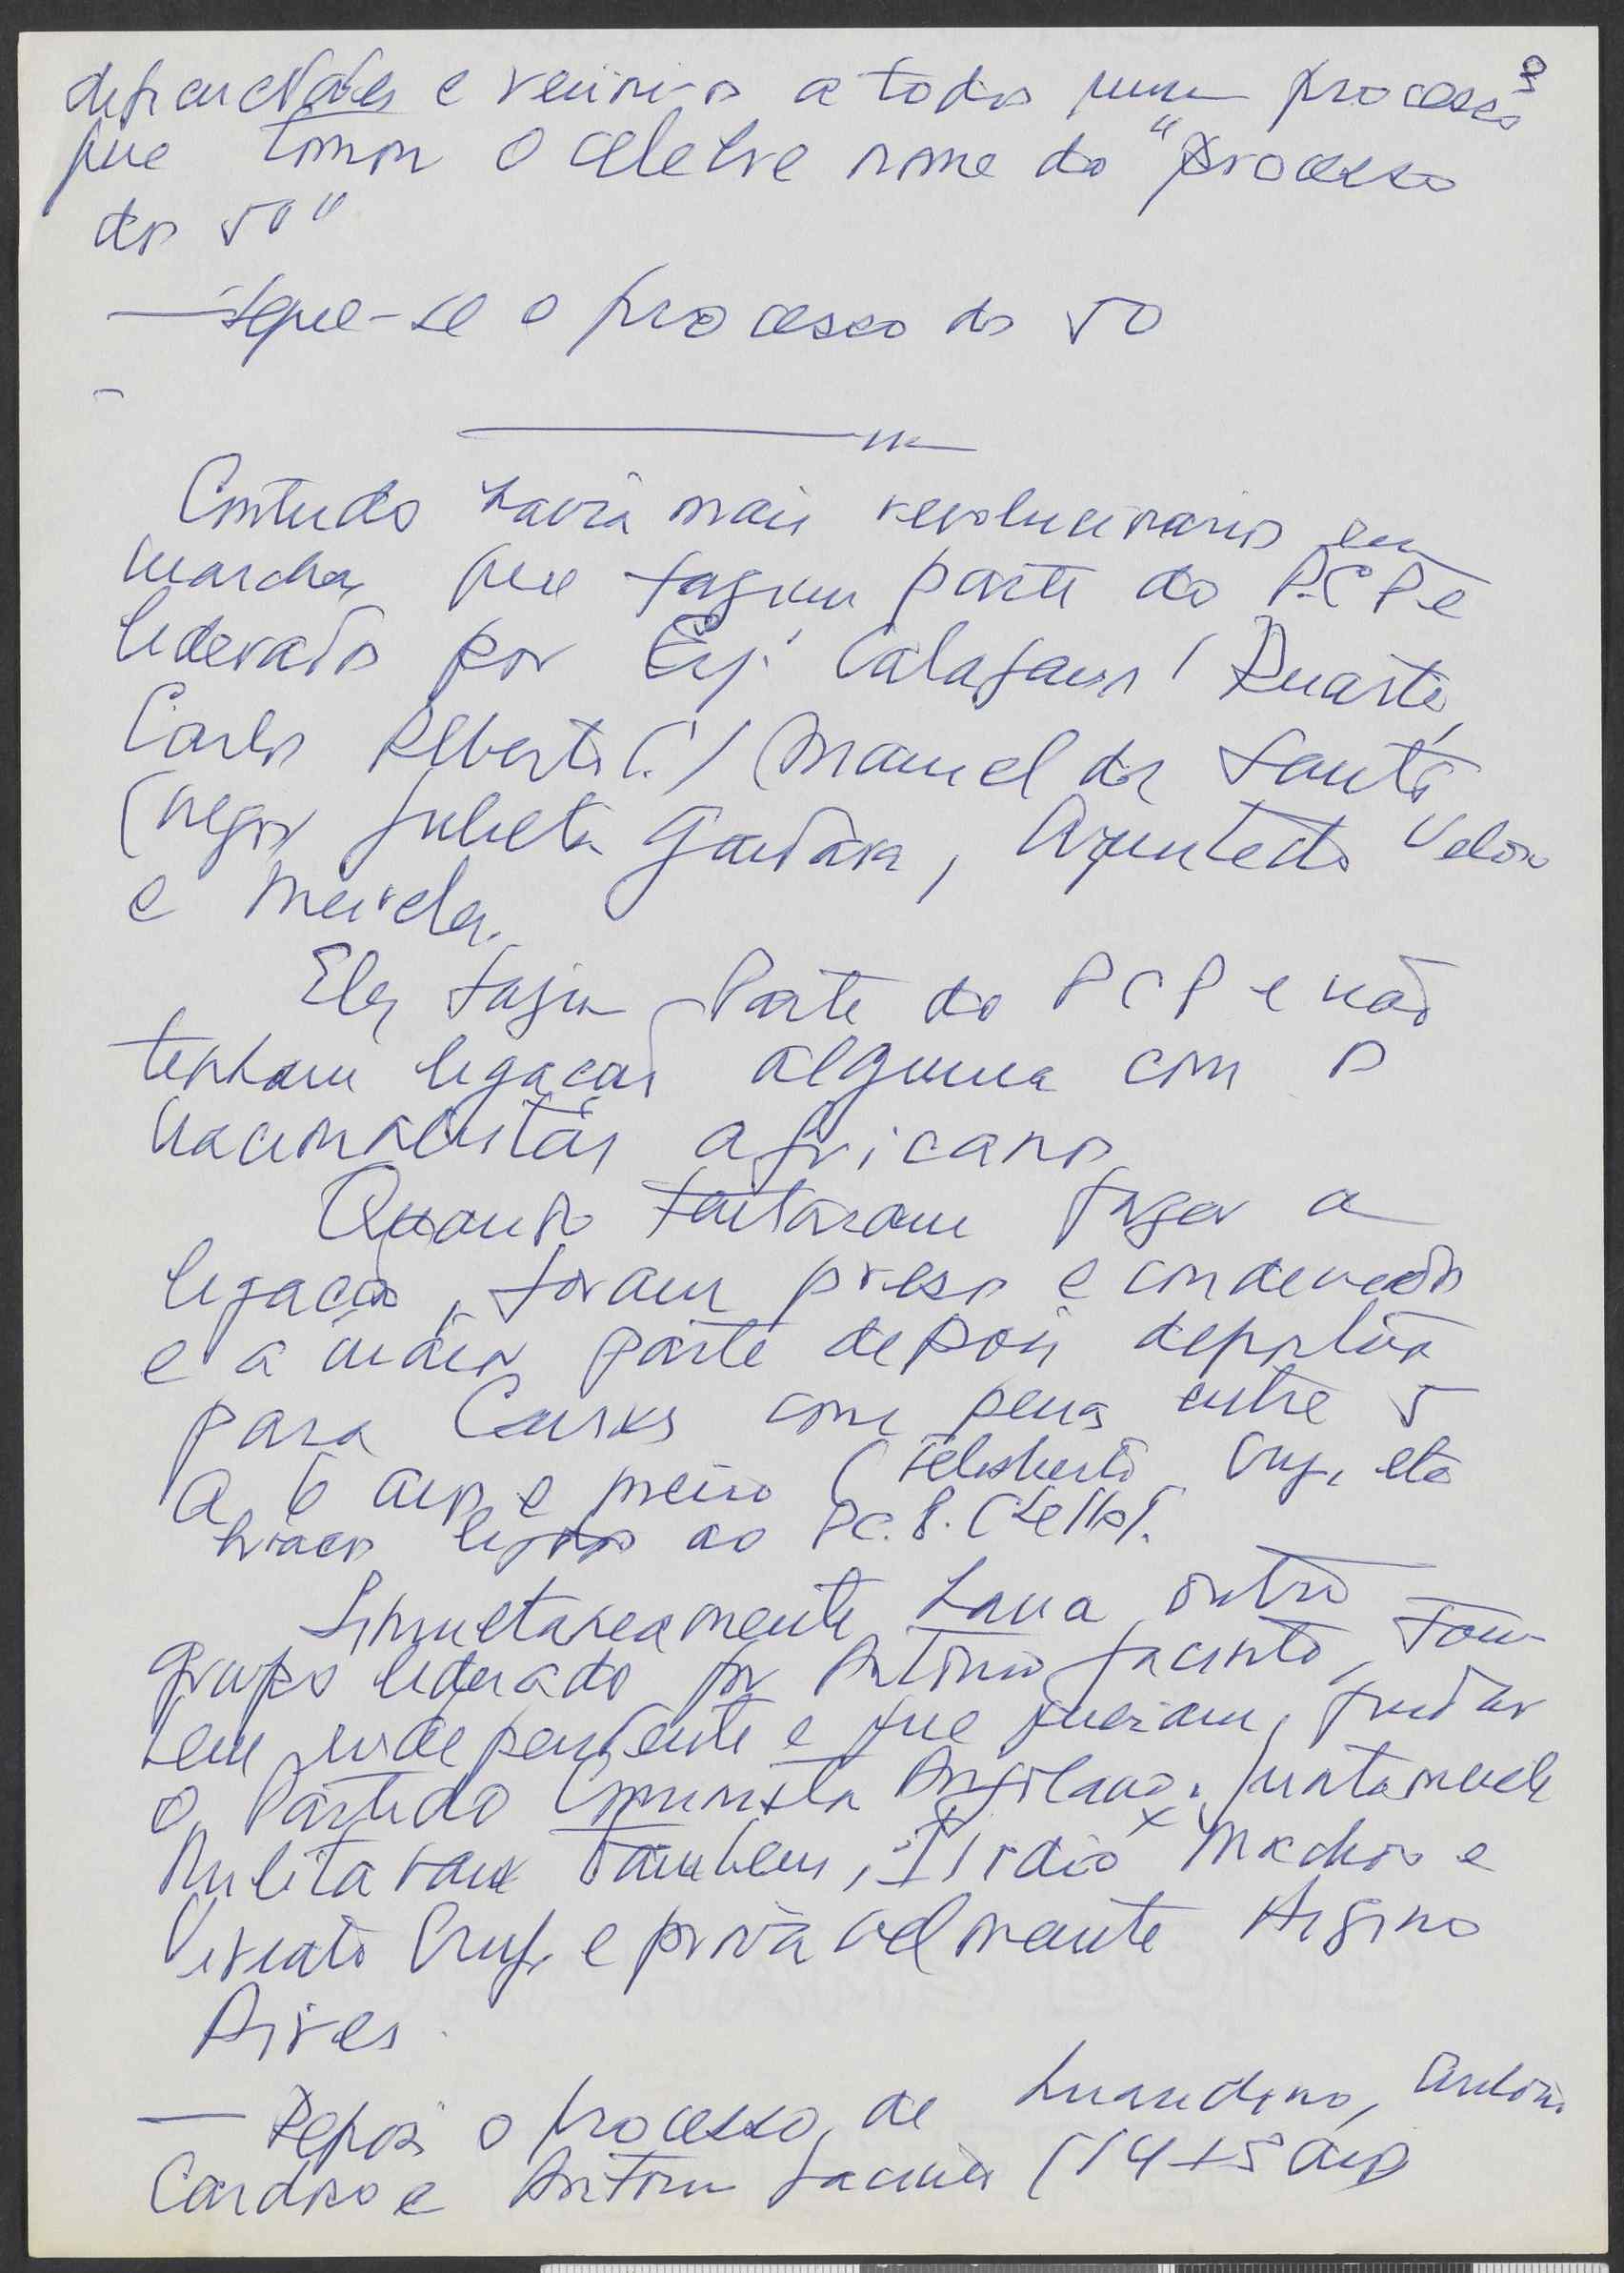 e reuni-os a todos num processo
que tomou o celebre nome do "processo
dos 50"
— Segue-se o processo dos 50
Contudo havia mais revolucionarios em
marcha, que faziam parte do P.C.P e
liderados por Eng. Calazans Duarte,
Carlos Alberto C. / (Manuel dos Santos
(negro) Julieta Gandara, Arquitecto Veloso
e Meireles.
Eles faziam Parte do P C P e não
tenham ligaçoes alguma com os
nacionalistas africanos
Quando tentaram fazer a
ligação, foram presos e condenados
e a maior parte depois deportada
para Caxias com penas entre 5
a 6 anos e meio ( Cruz, etc
ligados ao P.C.P.
Simultaneamente havia outro
grupo liderado por António Jacinto, Tam-
bem independente e que queriam, fundar
o Partido Comunista Angolano. Juntamente
Militavam Tambem, Ilidio Machado e
Viriato Cruz, e provavelmente Higino
Aires.
— Depois o processo, de Luandino, António
Cardoso e Antonio Jacinto (14 + 5 anos